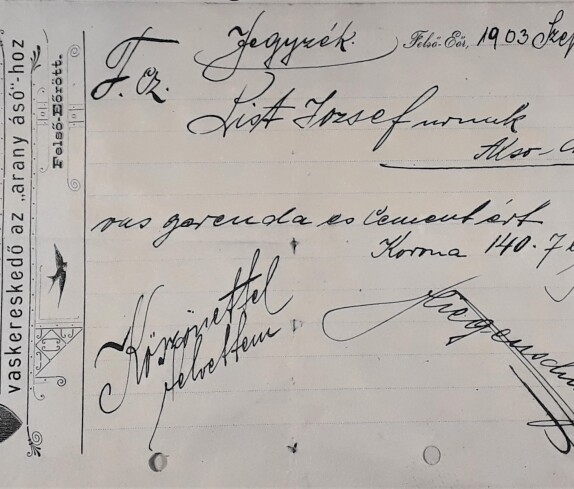 vaskereskedő az „arany ásó”-hoz
Felső-Eőrött.
Jegyzék.
Felső-Eőr, 1903 Szep
T. cz.
List József urnak
Alsó-
vas gerenda es Cementért
Korona 140. 7
Köszönettel
felvettem